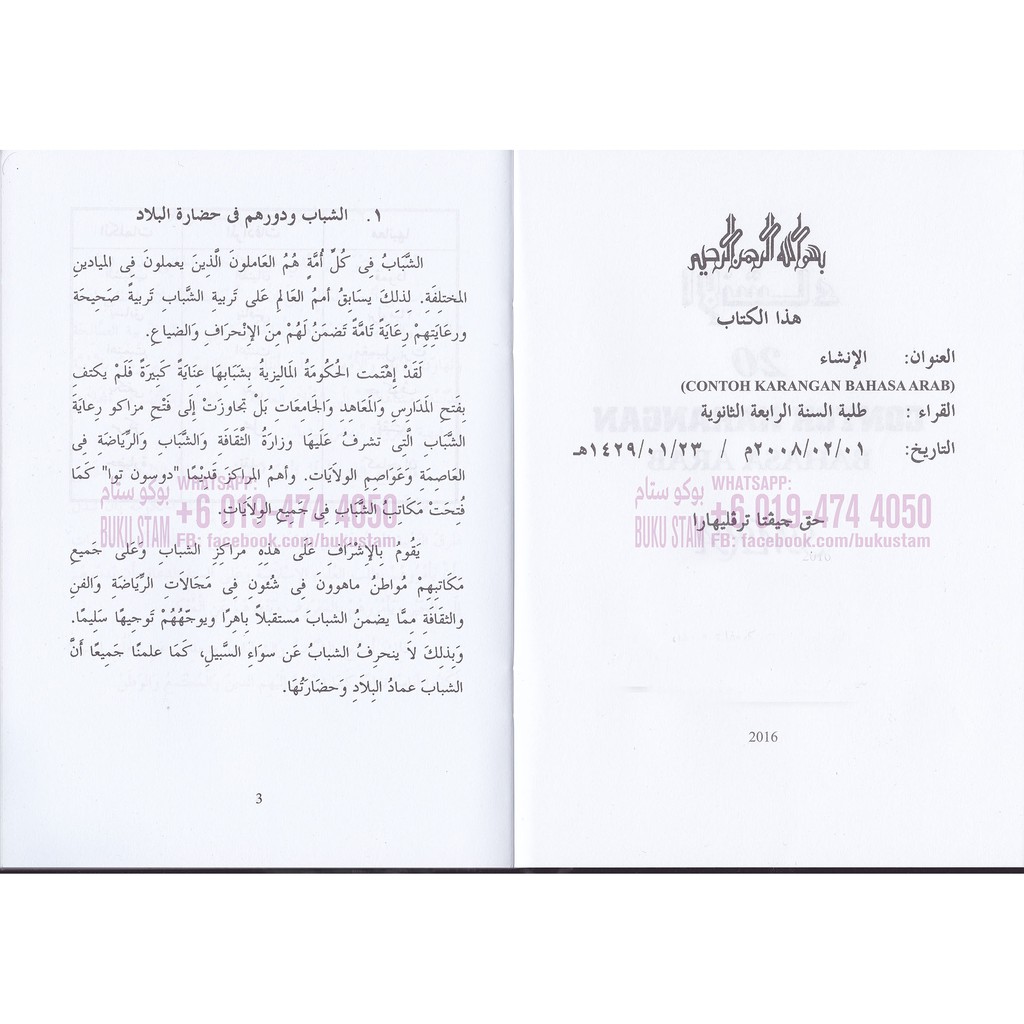 بسم الله الرحمن الرحيم
هذا الكتاب
العنوان: الإنشاء
(CONTOH KARANGAN BAHASA ARAB)
القراء : طلبة السنة الرابعة الثانوية
التاريخ: ٢٠٠٨/٠٢/٠١م / ١٤٢٩/٠١/٢٣هـ
بوكو ستام WHATSAPP:
BUKU STAM +6 019-474 4050
FB: facebook.com/bukustam
حق چيڤتا ترڤليهارا
2016
١. الشباب ودورهم فى حضارة البلاد
الشَّبَابُ فِى كُلِّ أُمَّةٍ هُمُ العَامِلونَ الَّذِينَ يعملونَ فِى الميادينِ
المختلِفَةِ. لِذلِكَ يسَابِقُ أممُ العالمِ عَلى تربيةِ الشَّبابِ تربيةً صَحِيحَة
ورعَايَتِهِمْ رِعَايَةً تَامَّةً تَضمَنُ لَهُمْ مِنَ الإِنْحرَافِ وَالضياعِ.
لَقَدْ إِهْتَمت الحُكُومَةُ المَاليزيةُ بشَبابِهَا عِنايَةً كَبِيرَةً فَلَمْ يكتفِ
بِفَتحِ المَدَارسِ وَالمَعَاهِدِ وَالجَامِعَات بَلْ تجاوزَتْ إلَى فَتْحِ مزاكو رعايةِ
الشَّبَابِ الَّتى تشرفُ عَلَيهَا وِزارةُ الثَّقافَةِ وَالشَّبابِ وَالرِّيَاضَةِ فِى
العَاصِمةِ وَعَوَاصِمِ الولاَيَاتِ. وأهمُ المراكزَ قدِيْمًا "دوسون توا" كَمَا
فُتِحَتْ مَكَاتِبُ الشَّبابِ فِى جَمِيعِ الوِلاَيَاتِ.
بوكو ستام WHATSAPP:
BUKU STAM +6 019-474 4050
FB: facebook.com/bukustam
يَقُومُ بِالإِشْرَافِ عَلَى هَذِهِ مرَاكزِ الشبابِ وَعَلى جَمِيعِ
مَكَاتبِهِمْ مُواطنُ ماهوونَ فِى شئونِ فِى مَجَالَاتِ الرِّيَاضَةِ وَالفنِ
والثقَافَةِ مِمَّا يضمنُ الشبابَ مستقبلاً بِاهرًا ويوجّهُهُمْ تَوجِيهًا سَلِيمًا.
وَبِذلِكَ لاَ ينحرِفُ الشبابُ عَن سوَاءِ السَّبيلِ، كَمَا علمنًا جَمِيعًا أَنَّ
الشبابَ عمادُ البِلاَدِ وَحضَارَتُهَا.
3